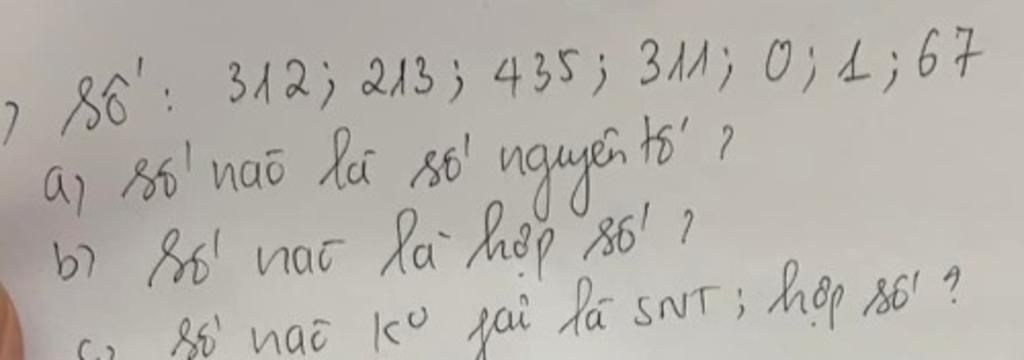 ) Số: 312; 213; 435; 311; 0; 1; 67
a) số nào là số nguyên tố?
b) Số nào là hợp số?
c) số nào k° fải là SNT; hợp số?